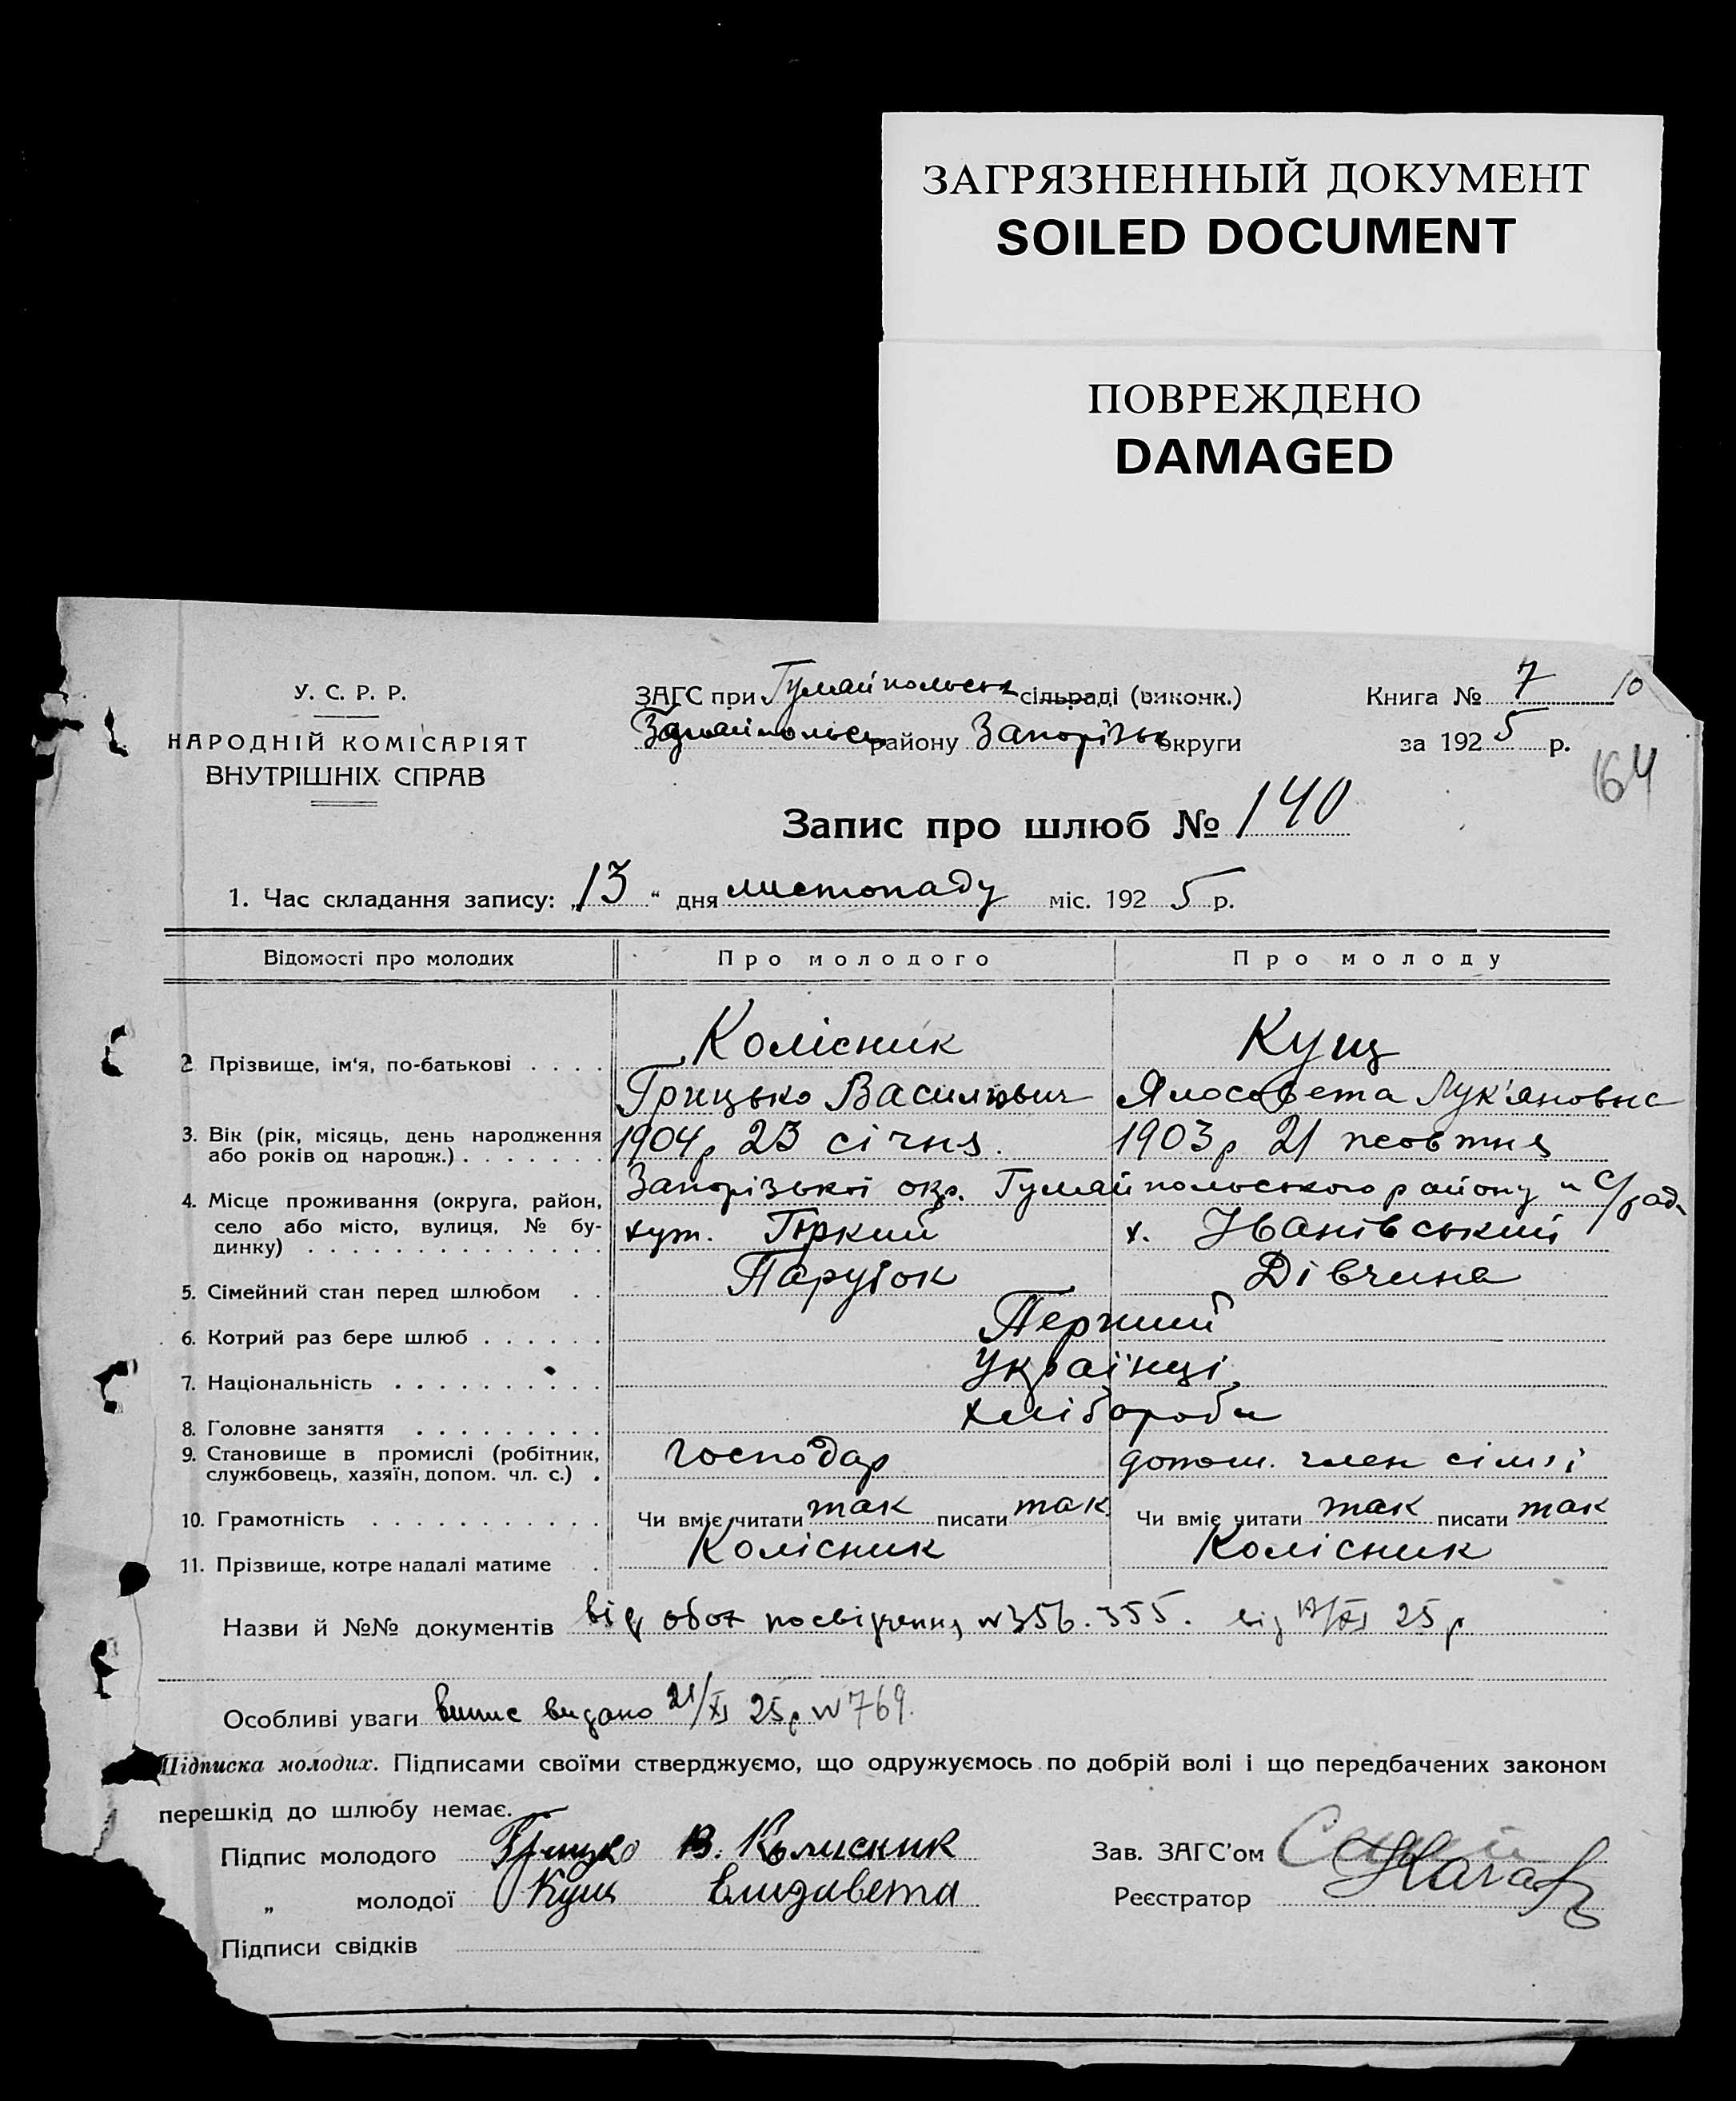 ЗАГРЯЗНЕННЫЙ ДОКУМЕНТ
SOILED DOCUMENT
ПОВРЕЖДЕНО
DAMAGED
У. С. Р. Р.
НАРОДНІЙ КОМІСАРІЯТ
ВНУТРІШНІХ СПРАВ
ЗАГС при Гумайпольськ сільраді (виконк.)
району Запорізьк округи
Книга № 7 10
за 1925 р.
164
Запис про шлюб № 140
1. Час складання запису: „13“ дня листопаду міс. 1925 р.
Відомості про молодих Про молодого Про молоду
2. Прізвище, ім'я, по-батькові . . . . Колісник Кущ
Грицько Васильович Ялосовета Лук'яновна
3. Вік (рік, місяць, день народження або років од народж.) . . . . . . . 1904р 23 січня. 1903р 21 жовтня
4. Місце проживання (округа, район, село або місто, вулиця, № будинку) . . . . . . . . . . . . . . Запорізької окр. Гумайпольського району с/рад.
хут. Гіркий х. Іванівський
5. Сімейний стан перед шлюбом . . Парубок Дівчина
6. Котрий раз бере шлюб . . . . . . Перший
7. Національність . . . . . . . . . . Українці
8. Головне заняття . . . . . . . . . хлібороби
9. Становище в промислі (робітник, службовець, хазяїн, допом. чл. с.) . господар допом. член сім'ї
10. Грамотність . . . . . . . . . . . Чи вміє читати так писати так Чи вміє читати так писати так
11. Прізвище, котре надалі матиме . Колісник Колісник
Назви й №№ документів від обох посвідчення №356.355. від /XI 25р
Особливі уваги випис видано 21/XI 25р №769.
Підписка молодих. Підписами своїми стверджуємо, що одружуємось по добрій волі і що передбачених законом
перешкід до шлюбу немає.
Підпис молодого Грицко В. Колисник Зав. ЗАГС'ом
„ молодої Кущ Елизавета Реєстратор
Підписи свідків